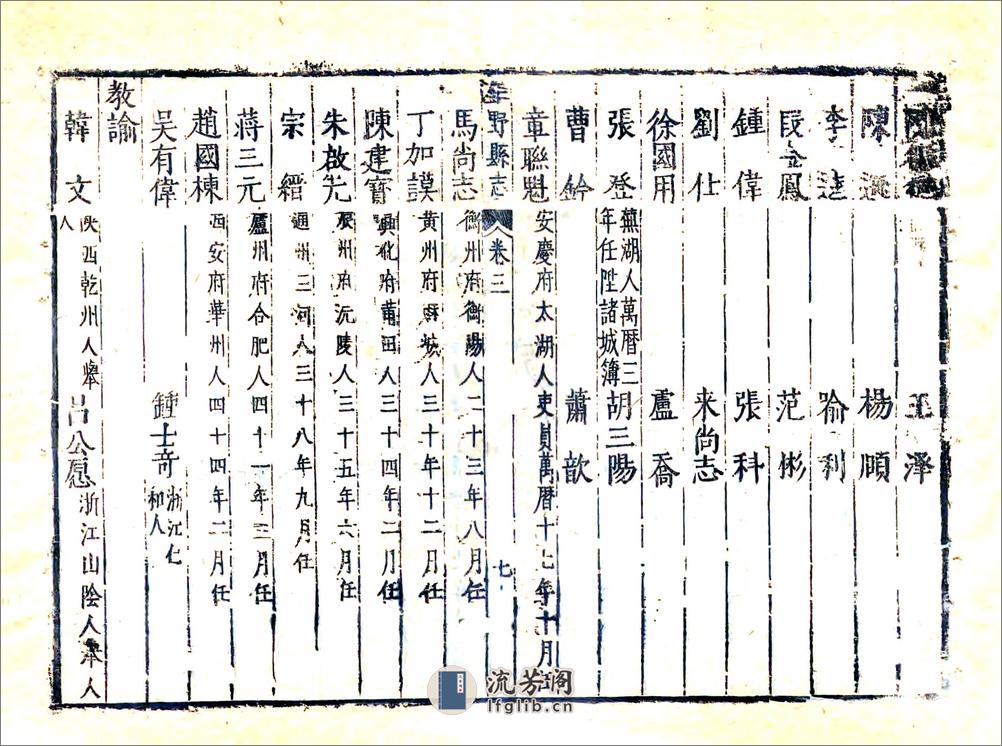 王澤
陳 楊頋
李逵 喻利
段金鳳 范彬
鍾偉 張科
劉仕 来尚志
徐國用 盧喬
張登 蕪湖人萬曆三年任陞諸城簿 胡三陽
曹鈐 蕭歆
章聯魁 安慶府太湖人吏員萬曆十七年十月
野縣志 卷三 七
馬尚志 衡州府衡陽人二十三年八月任
丁加謨 黄州府麻城人三十年十二月任
陳建寳 興化府莆田人三十四年二月任
朱啟先 辰州府沅陵人三十五年六月任
宗縉 通州三河人三十八年九月任
蒋三元 廬州府合肥人四十一年三月任
趙國棟 西安府華州人四十四年二月任
吴有偉 鍾士奇 浙江仁和人
教諭
韓文 陜西乾州人舉人 吕公愿 浙江山陰人舉人
流芳阁
lfglib.cn